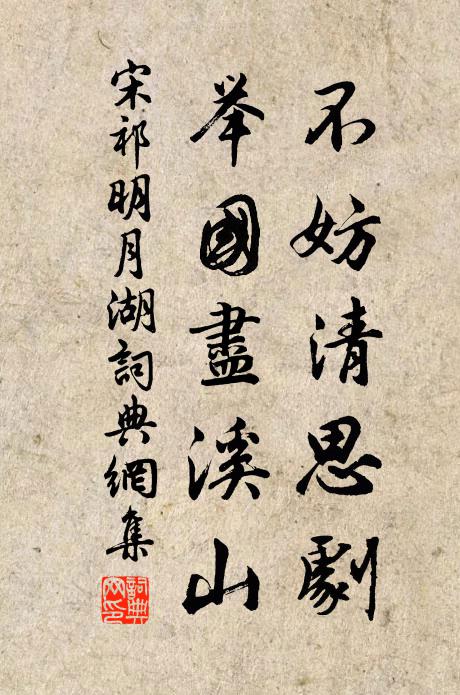 不妨清思劇
举國盡溪山
宋祁明月湖詞典網集
詞典网印